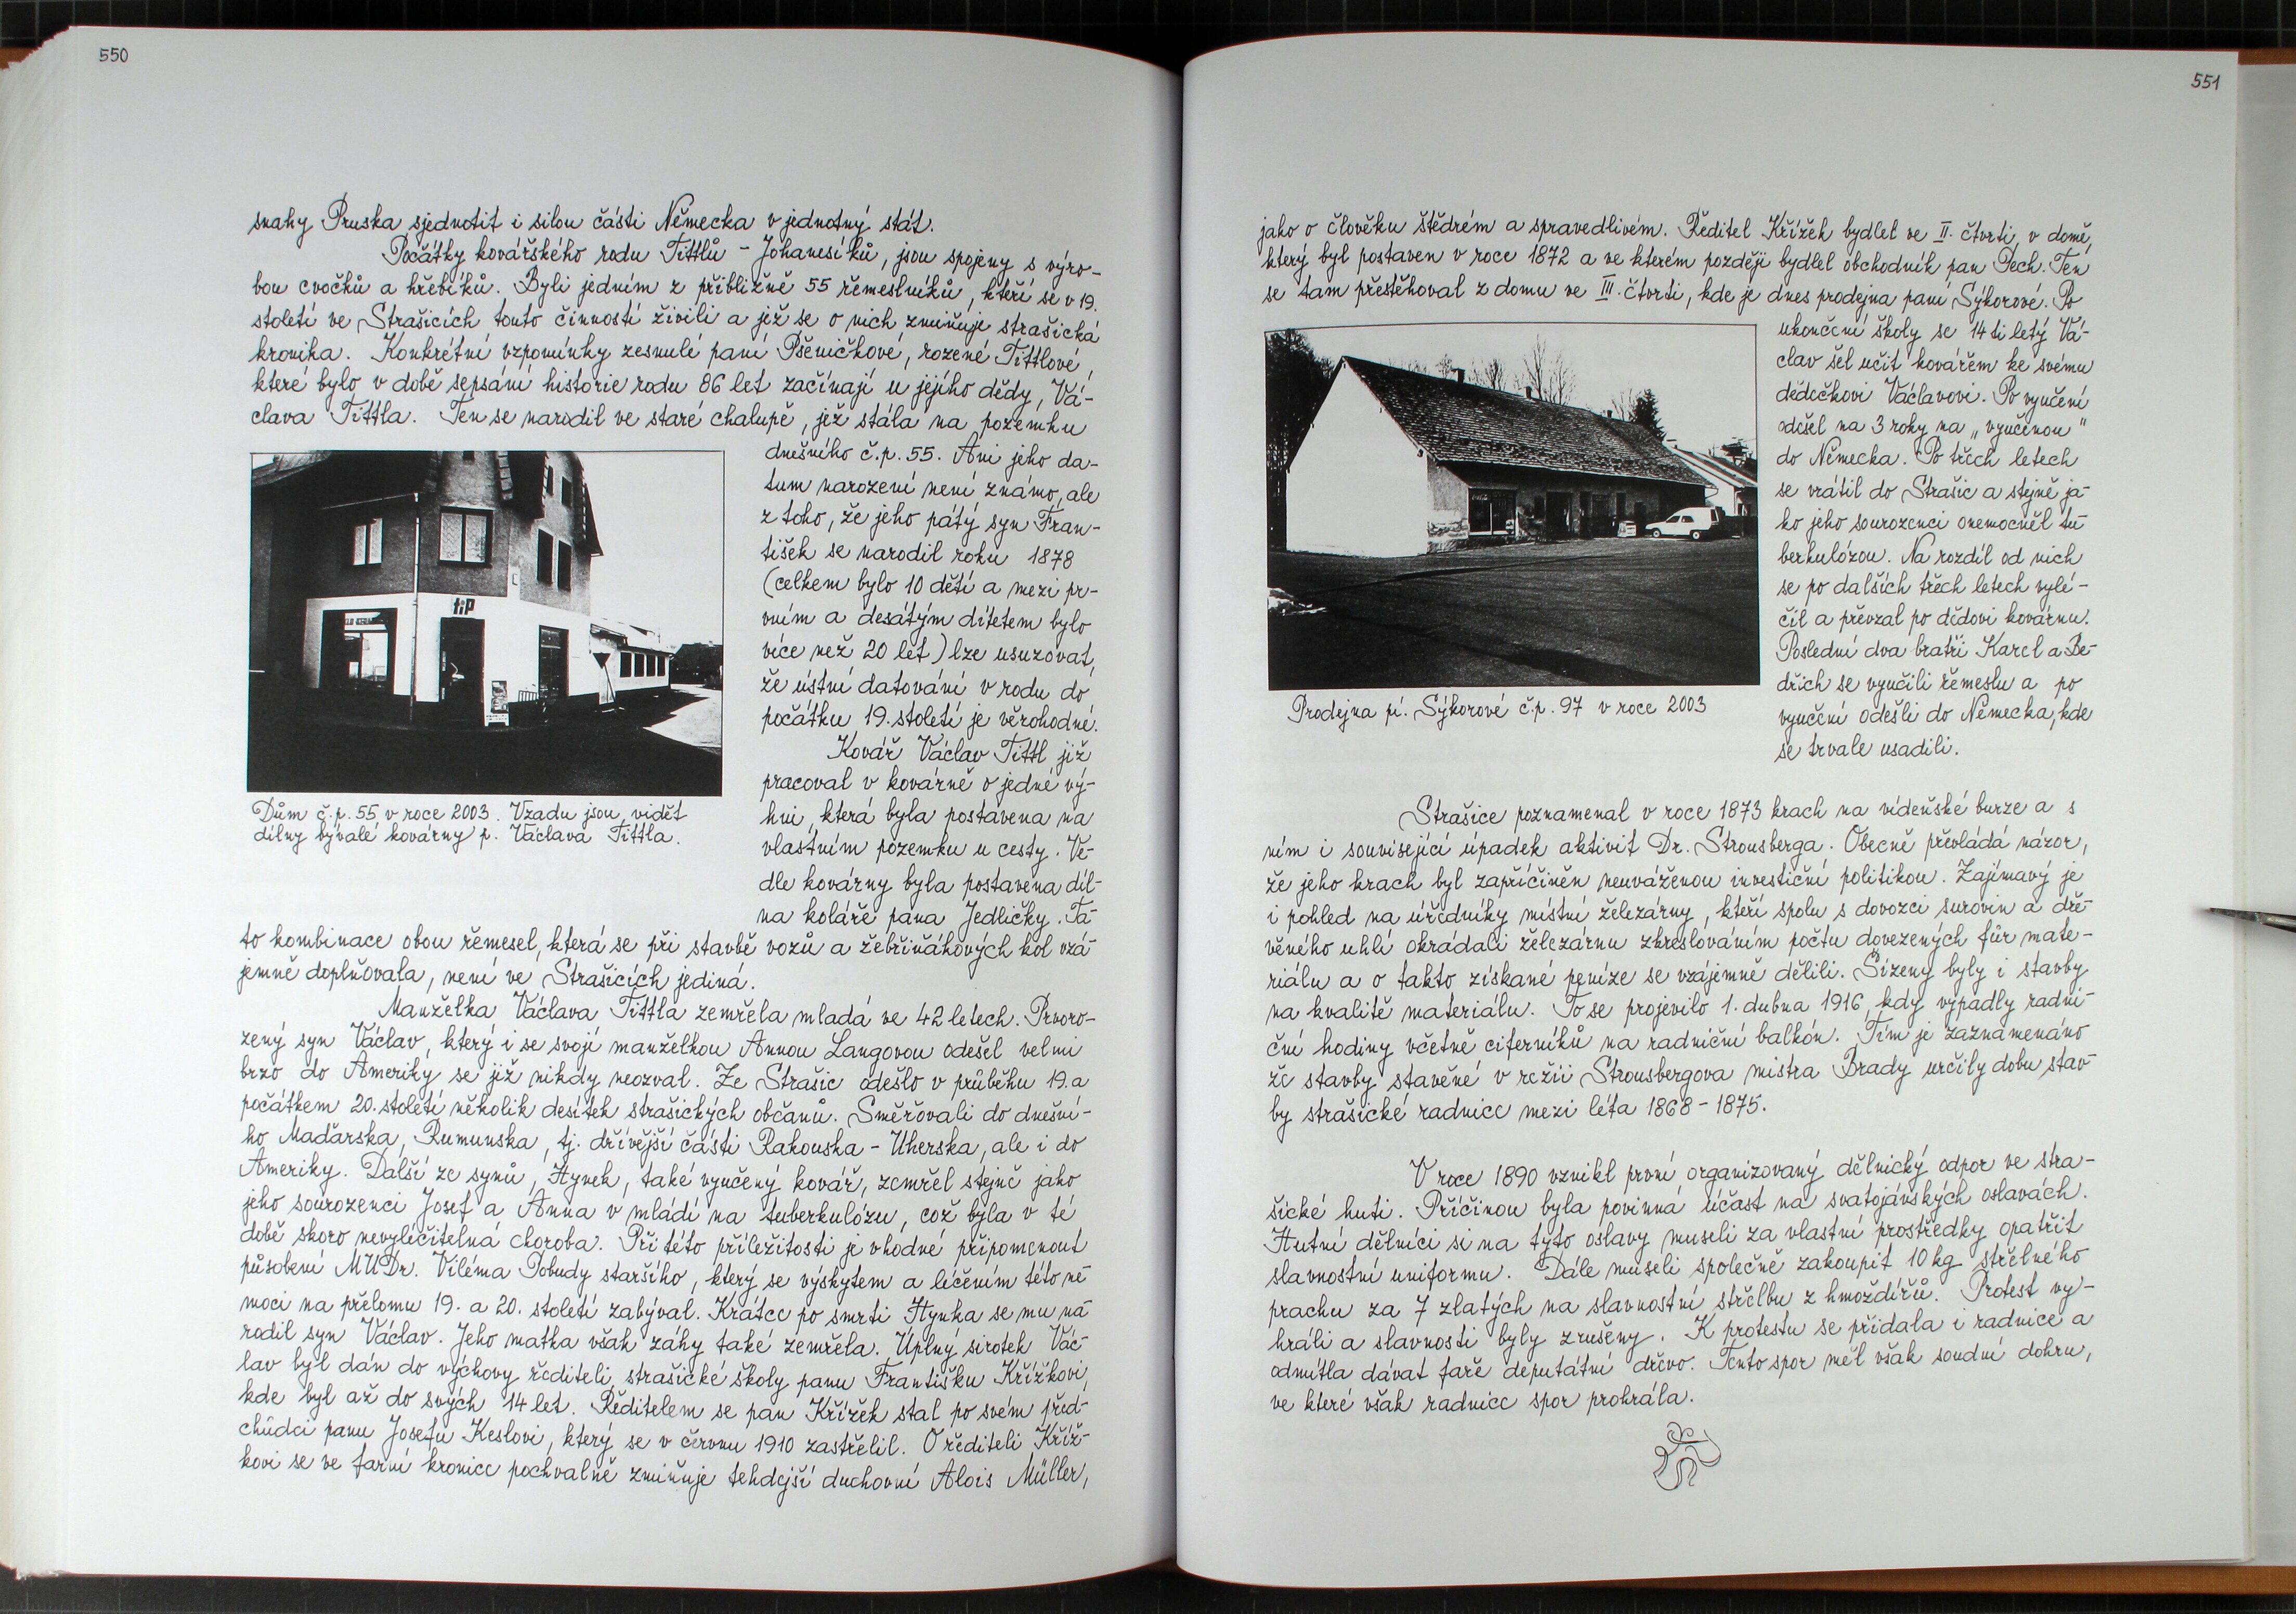 550
snahy Pruska sjednotit i silou části Německa v jednotný stát.
Počátky kovářského rodu Tittlů - Johanesíků, jsou spojeny s výro-
bou cvočků a hřebíků. Byli jedním z přibližně 55 řemeslníků, kteří se v 19.
století ve Strašicích touto činností živili a již se o nich zmiňuje strašická
kronika. Konkrétní vzpomínky zesnulé paní Pšeničkové, rozené Tittlové,
které bylo v době sepsání historie rodu 86 let začínají u jejího dědy, Vá-
clava Tittla. Ten se narodil ve staré chalupě, jež stála na pozemku
dnešního č.p. 55. Ani jeho da-
tum narození není známo, ale
z toho, že jeho pátý syn Fran-
tišek se narodil roku 1878
(celkem bylo 10 dětí a mezi pr-
vním a desátým dítětem bylo
více než 20 let) lze usuzovat,
že ústní datování v rodu do
počátku 19. století je věrohodné.
Kovář Václav Tittl již
pracoval v kovárně o jedné vý-
hni, která byla postavena na
vlastním pozemku u cesty. Ve-
dle kovárny byla postavena díl-
na koláře pana Jedličky. Ta-
tip
Dům č.p. 55 v roce 2003. Vzadu jsou vidět
dílny bývalé kovárny p. Václava Tittla.
to kombinace obou řemesel, která se při stavbě vozů a žebřiňákových kol vzá-
jemně doplňovala, není ve Strašicích jediná.
Manželka Václava Tittla zemřela mladá ve 42 letech. Prvoro-
zený syn Václav, který i se svojí manželkou Annou Langovou odešel velmi
brzo do Ameriky se již nikdy neozval. Ze Strašic odešlo v průběhu 19. a
počátkem 20. století několik desítek strašických občanů. Směřovali do dnešní-
ho Maďarska, Rumunska, tj. dřívější části Rakouska - Uherska, ale i do
Ameriky. Další ze synů, Hynek, také vyučený kovář, zemřel stejně jako
jeho sourozenci Josef a Anna v mládí na tuberkulózu, což byla v té
době skoro nevyléčitelná choroba. Při této příležitosti je vhodné připomenout
působení MUDr. Viléma Pobudy staršího, který se výskytem a léčením této ne-
moci na přelomu 19. a 20. století zabýval. Krátce po smrti Hynka se mu na-
rodil syn Václav. Jeho matka však záhy také zemřela. Úplný sirotek Vác-
lav byl dán do výchovy řediteli strašické školy panu Františku Křížkovi,
kde byl až do svých 14 let. Ředitelem se pan Křížek stal po svém před-
chůdci panu Josefu Keslovi, který se v červnu 1910 zastřelil. O řediteli Kříž-
kovi se ve farní kronice pochvalně zmiňuje tehdejší duchovní Alois Müller,
551
jako o člověku štědrém a spravedlivém. Ředitel Křížek bydlel ve II. čtvrti, v domě,
který byl postaven v roce 1872 a ve kterém později bydlel obchodník pan Pech. Ten
se tam přestěhoval z domu ve III. čtvrti, kde je dnes prodejna paní Sýkorové. Po
ukončení školy se 14 ti letý Vá-
clav šel učit kovářem ke svému
dědečkovi Václavovi. Po vyučení
odešel na 3 roky na „vyučenou"
do Německa. Po třech letech
se vrátil do Strašic a stejně ja-
ko jeho sourozenci onemocněl tu-
berkulózou. Na rozdíl od nich
se po dalších třech letech vylé-
čil a převzal po dědovi kovárnu.
Poslední dva bratři Karel a Be-
dřich se vyučili řemeslu a po
vyučení odešli do Německa, kde
se trvale usadili.
Prodejna pí. Sýkorové č.p. 97 v roce 2003
Strašice poznamenal v roce 1873 krach na vídeňské burze a s
ním i související úpadek aktivit Dr. Strousberga. Obecně převládá názor,
že jeho krach byl zapříčiněn neuváženou investiční politikou. Zajímavý je
i pohled na úředníky místní železárny, kteří spolu s dovozci surovin a dře-
věného uhlí okrádali železárnu zkreslováním počtu dovezených fůr mate-
riálu a o takto získané peníze se vzájemně dělili. Šizeny byly i stavby
na kvalitě materiálu. To se projevilo 1. dubna 1916, kdy vypadly radni-
ční hodiny včetně ciferníků na radniční balkón. Tím je zaznamenáno
že stavby stavěné v režii Strousbergova mistra Brady určily dobu stav-
by strašické radnice mezi léta 1868 - 1875.
V roce 1890 vznikl první organizovaný dělnický odpor ve stra-
šické huti. Příčinou byla povinná účast na svatojánských oslavách.
Hutní dělníci si na tyto oslavy museli za vlastní prostředky opatřit
slavnostní uniformu. Dále museli společně zakoupit 10 kg střelného
prachu za 7 zlatých na slavnostní střelbu z hmoždířů. Protest vy-
hráli a slavnosti byly zrušeny. K protestu se přidala i radnice a
odmítla dávat faře deputátní dřevo. Tento spor měl však soudní dohru,
ve které však radnice spor prohrála.